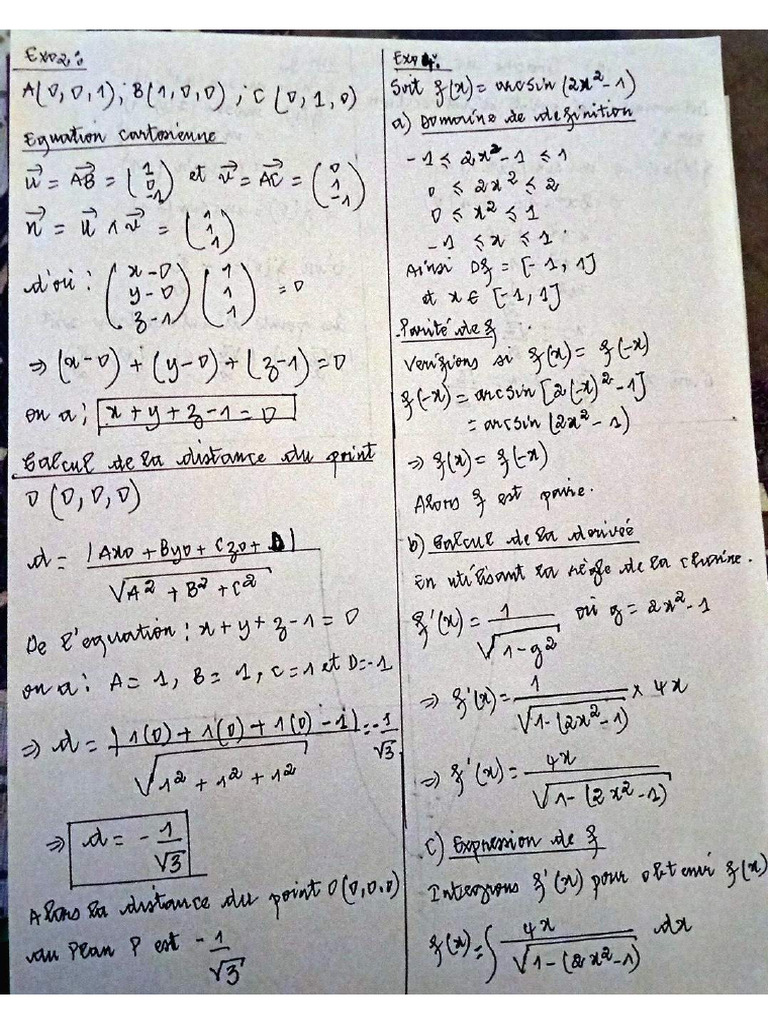 Exo2:
A(0,0,1); B(1,0,0); C(0,1,0)
Equation cartesienne
u⃗ = AB⃗ = (1 0 -1) et v⃗ = AC⃗ = (0 1 -1)
n⃗ = u⃗ ∧ v⃗ = (1 1 1)
d'où : (x-0 y-0 z-1) (1 1 1) = 0
⇒ (x-0) + (y-0) + (z-1) = 0
on a; x + y + z - 1 = 0
Calcul de la distance du point
O(0,0,0)
d = |Ax0 + By0 + Cz0 + D| / √A² + B² + C²
De l'equation: x + y + z - 1 = 0
on a: A = 1, B = 1, C = 1 et D = -1
⇒ d = |1(0) + 1(0) + 1(0) - 1| / √1² + 1² + 1² = -1/√3
⇒ d = -1/√3
Alors la distance du point O(0,0,0)
du Plan P est -1/√3
Exo4:
Soit f(x) = arcsin(2x²-1)
a) Domaine de definition
-1 ≤ 2x²-1 ≤ 1
0 ≤ 2x² ≤ 2
0 ≤ x² ≤ 1
-1 ≤ x ≤ 1
Ainsi Df = [-1, 1]
et x ∈ [-1, 1]
Parité de f
Verifions si f(x) = f(-x)
f(-x) = arcsin[2(-x)²-1]
= arcsin(2x²-1)
⇒ f(x) = f(-x)
Alors f est paire.
b) Calcul de la derivée
En utilisant la règle de la chaine.
f'(x) = 1/√1-g² où g = 2x²-1
⇒ f'(x) = 1/√1-(2x²-1) × 4x
⇒ f'(x) = 4x/√1-(2x²-1)
c) Expression de f
Integrons f'(x) pour obtenir f(x)
f(x) = ∫ 4x/√1-(2x²-1) dx